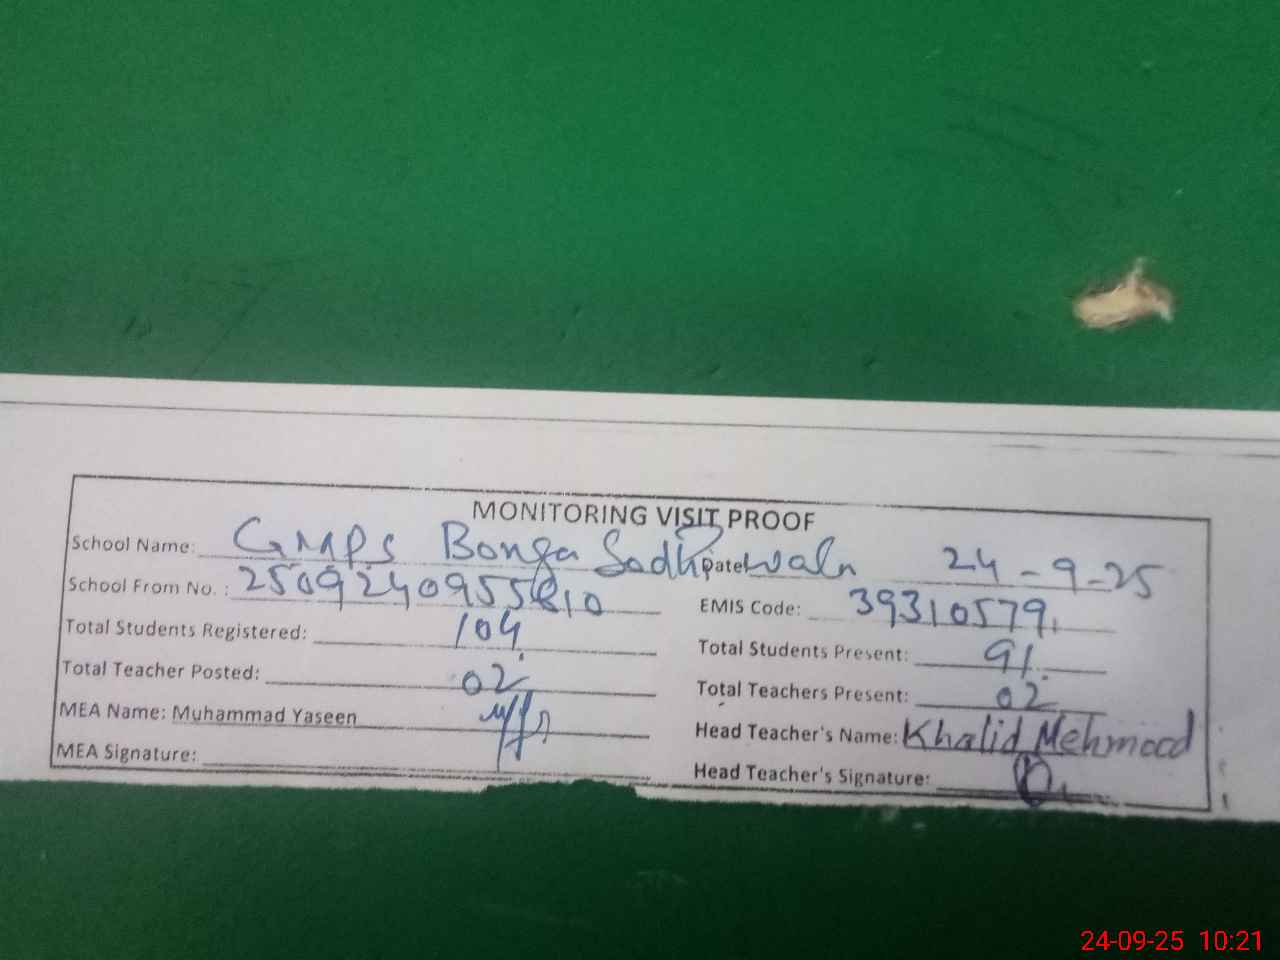 MONITORING VISIT PROOF
School Name: GMPS Bonga Sadhiwala Date 24-9-25
School From No. : 2509240955810 EMIS Code: 39310579
Total Students Registered: 104 Total Students Present: 91
Total Teacher Posted: 02 Total Teachers Present: 02
MEA Name: Muhammad Yaseen Head Teacher's Name: Khalid Mehmood
MEA Signature: Head Teacher's Signature:
24-09-25 10:21